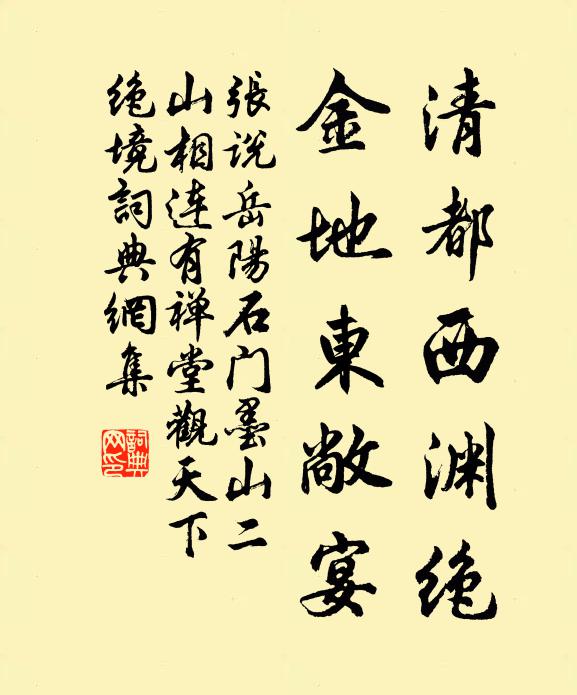 清都西渊绝
金地東敞宴
張说岳陽石门墨山二
山相连有禅堂觀天下
绝境詞典網集
詞典网印